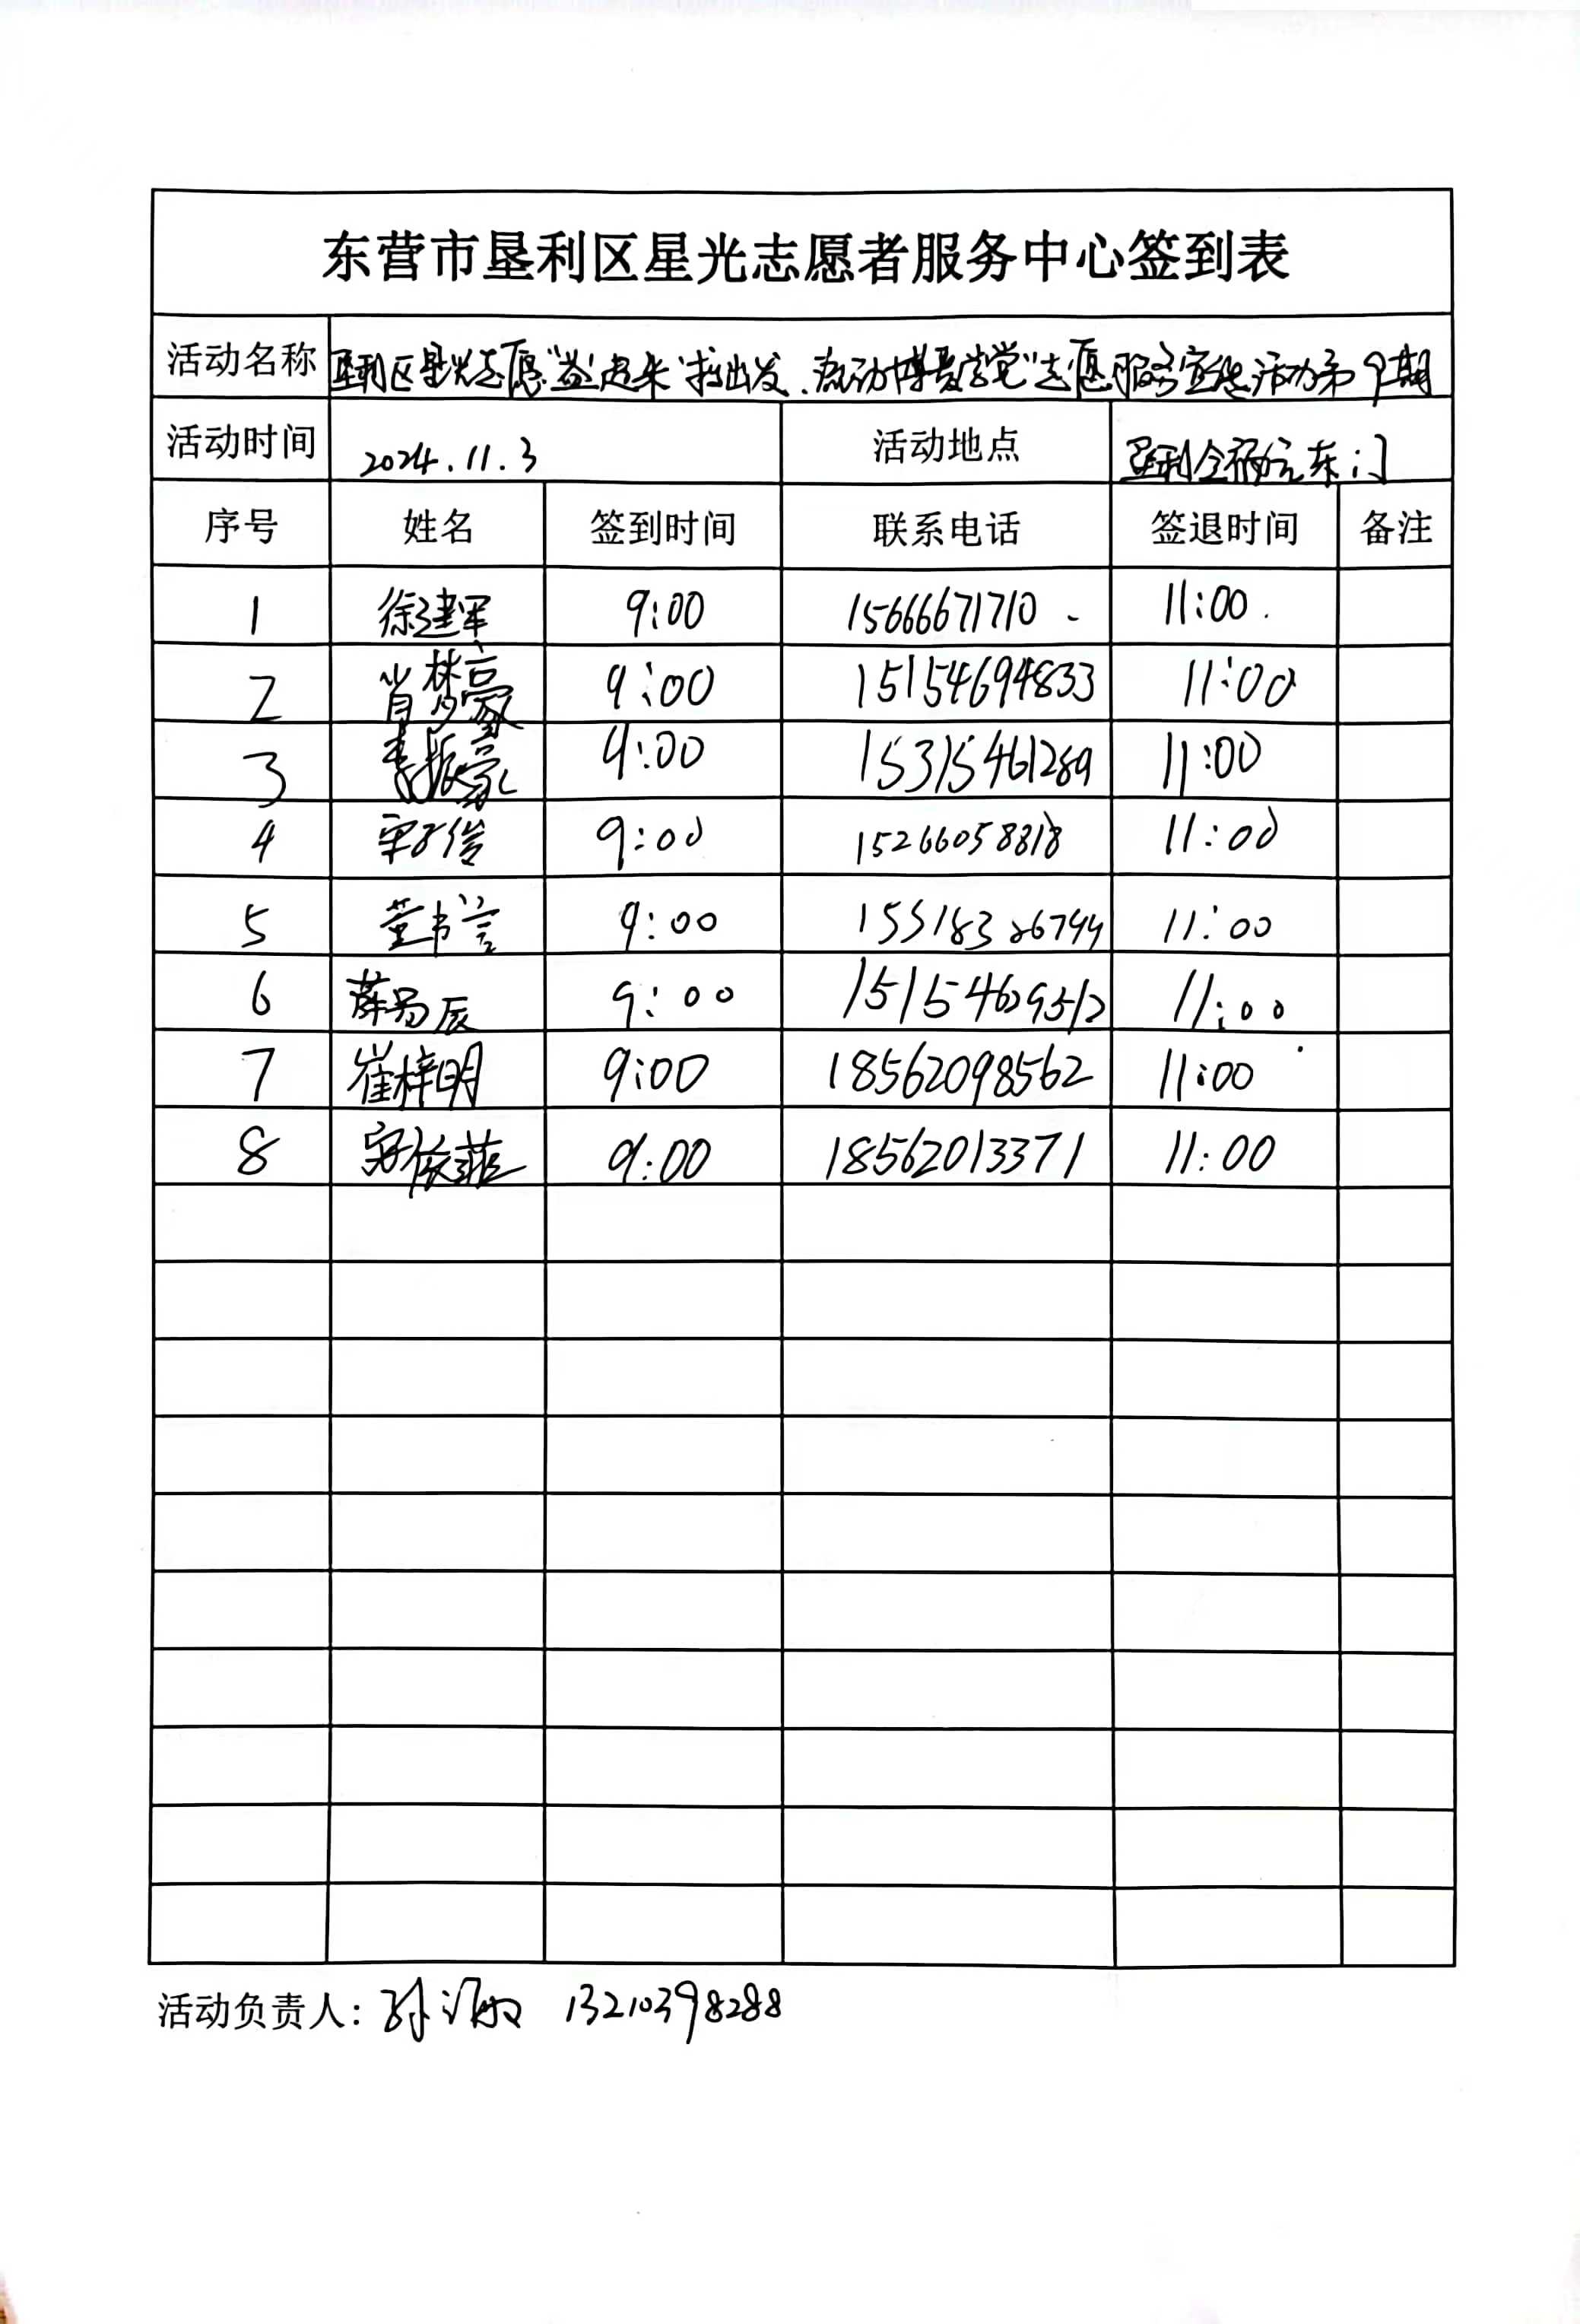 东营市垦利区星光志愿者服务中心签到表
活动名称 垦利区星光志愿“益”起来 出发、流动博爱学堂”志愿服务宣传活动第9期
活动时间 2024.11.3 活动地点 垦利金福元东门
序号 姓名 签到时间 联系电话 签退时间 备注
1 徐建军 9:00 15666671710 11:00
2 肖梦豪 9:00 15154694833 11:00
3 李振豪 9:00 15315461289 11:00
4 9:00 15266058818 11:00
5 董书言 9:00 11:00
6 薛易辰 9:00 15154629512 11:00
7 崔梓明 9:00 18562098562 11:00
8 宋依菲 9:00 18562013371 11:00
活动负责人: 孙 13210398288